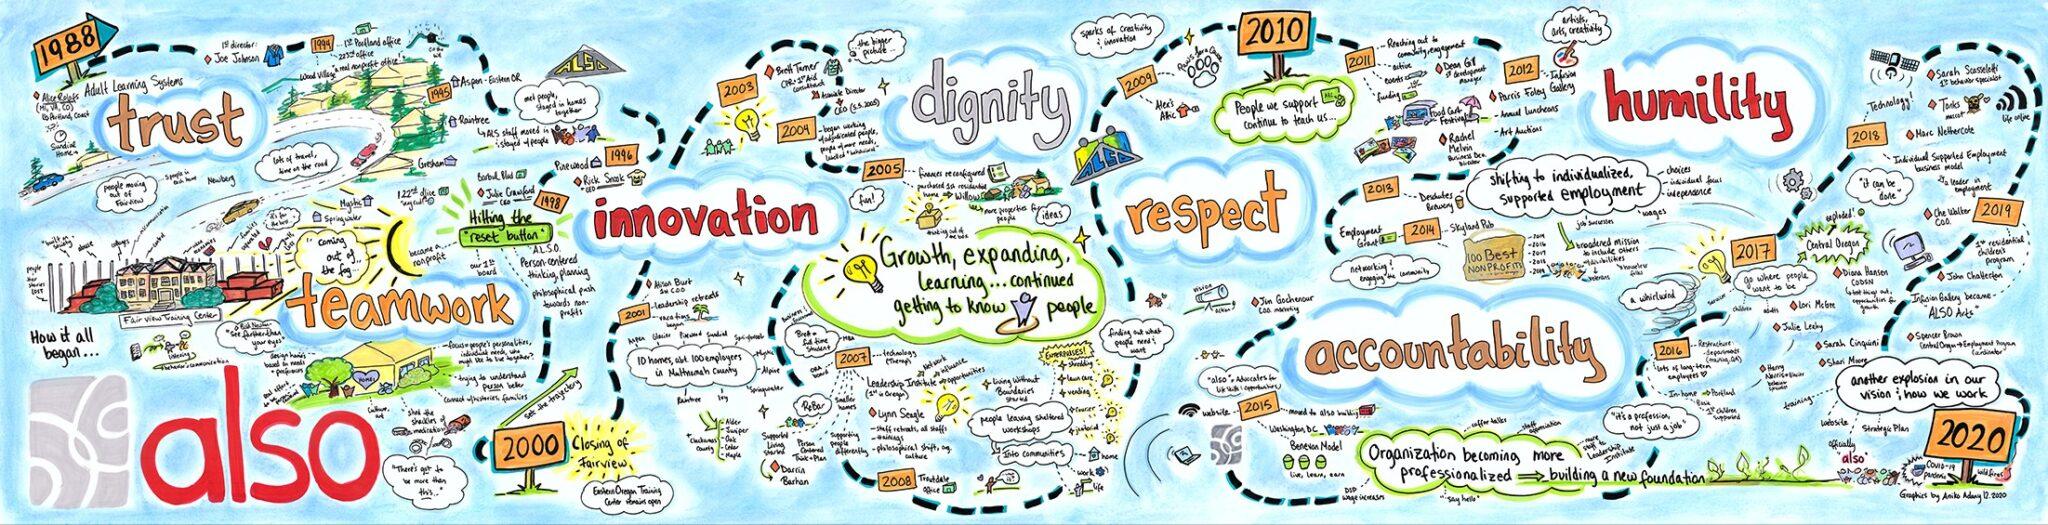 1988
1st director:
Joe Johnson
1994
1st Portland office
223rd office
"a real nonprofit office"
Wood Village
Adult Learning Systems
trust
Sundial
Home
lots of travel,
time on the road
people moving
out of
Fairview
Newberg
1995
Aspen - Eastern OR
Raintree
Gresham
ALSO
met people,
stayed in homes
together
ALS staff moved in
; stayed w/ people
Pinewood
1996
Rick Snook
CEO
Barbul Blvd
Julie Crawford
CEO
1998
Hitting the
"reset button"
A.L.S.O.
Person-centered
thinking, planning
philosophical push
towards non-
profits
became a
nonprofit
our 1st
board
Mystic
Springwater
"coming
out of
the fog..."
teamwork
Fairview Training Center
How it all
began...
"see further than
your eyes"
listening
behavior = communication
design homes
based on needs
preferences
HOME!
focus on people's personalities,
individual needs, who
might like to live together?
trying to understand
person better
connect w/ histories, families
Culture,
art
shed the
shackles
medications
"There's got to
be more than
this..."
also
set the trajectory
2000
Closing of
Fairview
Eastern Oregon Training
Center remains open
innovation
Alison Burt
Leadership retreats
2001
vacations
began
10 homes, abt 100 employees
in Multnomah County
Alpine
Springwater
Raintree
Ivy
Clackamas
County
Alder
Juniper
Oak
Cedar
Maple
2003
Brett Turner
CPR + 1st Aid
consultant
Associate Director
CEO (5.5.2005)
the bigger
picture...
2004
began working
w/ adjudicated people,
people w/ more needs,
labelled "behavioral"
2005
finances reconfigured
purchased 1st residential
home
Willow
more properties for
people
fun!
thinking out of
the box
ideas
dignity
Growth, expanding,
learning...continued
getting to know people
Brett =
full time
student
MBA
2007
technology
(therap)
Leadership Institute
(1st in Oregon)
Network
of influence
opportunities
ReBar
smaller
homes
Supported
living
started
Person
Centered
Think + Plan
Supporting
people
differently
Darrin
Barhan
Lynn Seagle
staff retreats, all staffs
trainings
philosophical shift, org.
culture
2008
Troutdale
office
Living Without
Boundaries
started
people leaving sheltered
workshops
Into communities
home
work
life
ENTERPRISES!
shredding
lawn care
vending
courier
janitorial
finding out what
people need ;
want
sparks of creativity
; innovation
2009
Paws for a Cause
Alex's
Attic
ALSO
respect
2010
People we support
continue to teach us...
2011
Reaching out to
community, engagement
active
events
funding
Dean Gill
1st development
manager
Food Carts
Festival
Rachel
Melvin
Business Dev.
Director
2012
artists,
arts, creativity
Infusion
Gallery
Parris Foley
Annual Luncheons
Art Auctions
2013
Deschutes
Brewery
shifting to individualized,
supported employment
choices
individual focus
independence
wages
job successes
Employment
Grant
2014
Skyland Pub
networking ;
engaging the community
100 Best
NONPROFIT!
broadened mission
to include others
w/ disabilities
veterans
vision
action
Jim Gochenour
COO, marketing
accountability
"also" = Advocates for
Life Skills ; Opportunities
website
2015
moved to also building
Washington, D.C.
Benevon Model
live, learn, earn
DSP
wage increases
Organization becoming more
professionalized ⟹ building a new foundation
coffee talks
staff appreciation
more
staff to
Leadership
Institute
"say hello"
"it's a profession,
not just a job"
2016
Restructure -
departments
(training, QA)
lots of long-term
employees
In-home → Portland
1st children
supported
a whirlwind
2017
go where people
want to be
children
adults
exploded!
Central Oregon
Diana Hansen
CODSN
Lori McGee
Julie Leeby
Sarah Cinquini
Shari Moore
humility
Technology!
2018
"it can be
done"
Sarah Scassellati
1st behavior specialist
Tonks
mascot
life online
Marc Nethercote
Individual Supported Employment
business model
a leader in
employment
Che Walker
C.O.O.
2019
1st residential
children's
program
John Chatterton
Infusion Gallery became
ALSO Arts
Spencer Brown
Central Oregon Employment Program
Coordinator
another explosion in our
vision ; how we work
training
website
Strategic Plan
officially
also
COVID-19
pandemic
2020
wildfires
Graphics by Aniko Adany 12.2020